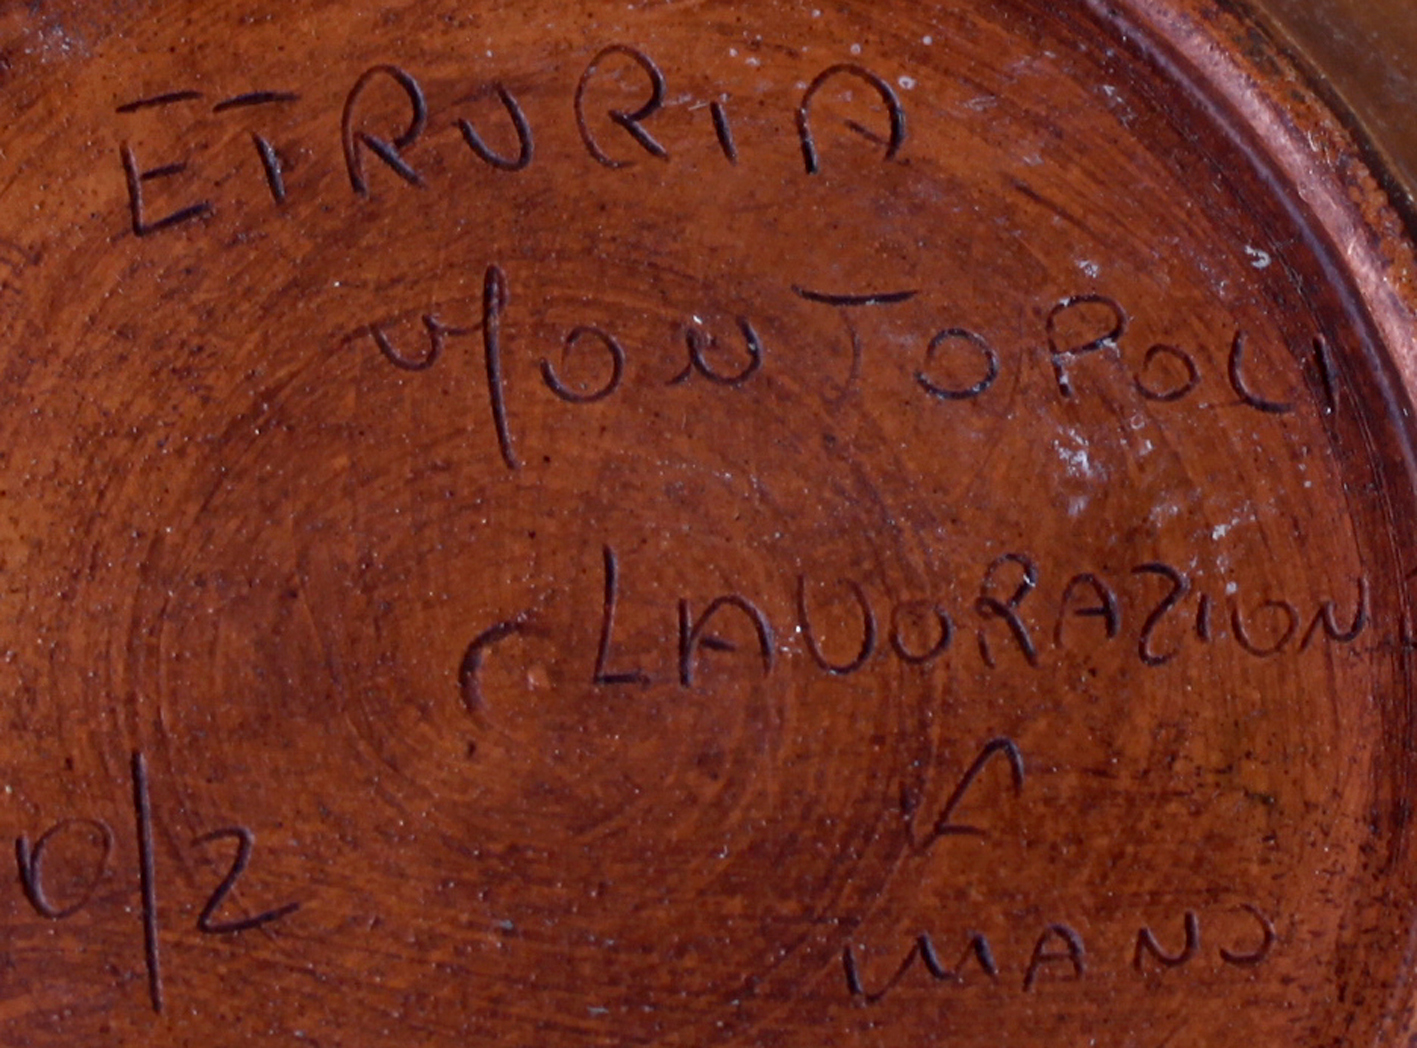 ETRURIA
MONTOPOLI
LAVORAZION
A
MANO
0/2